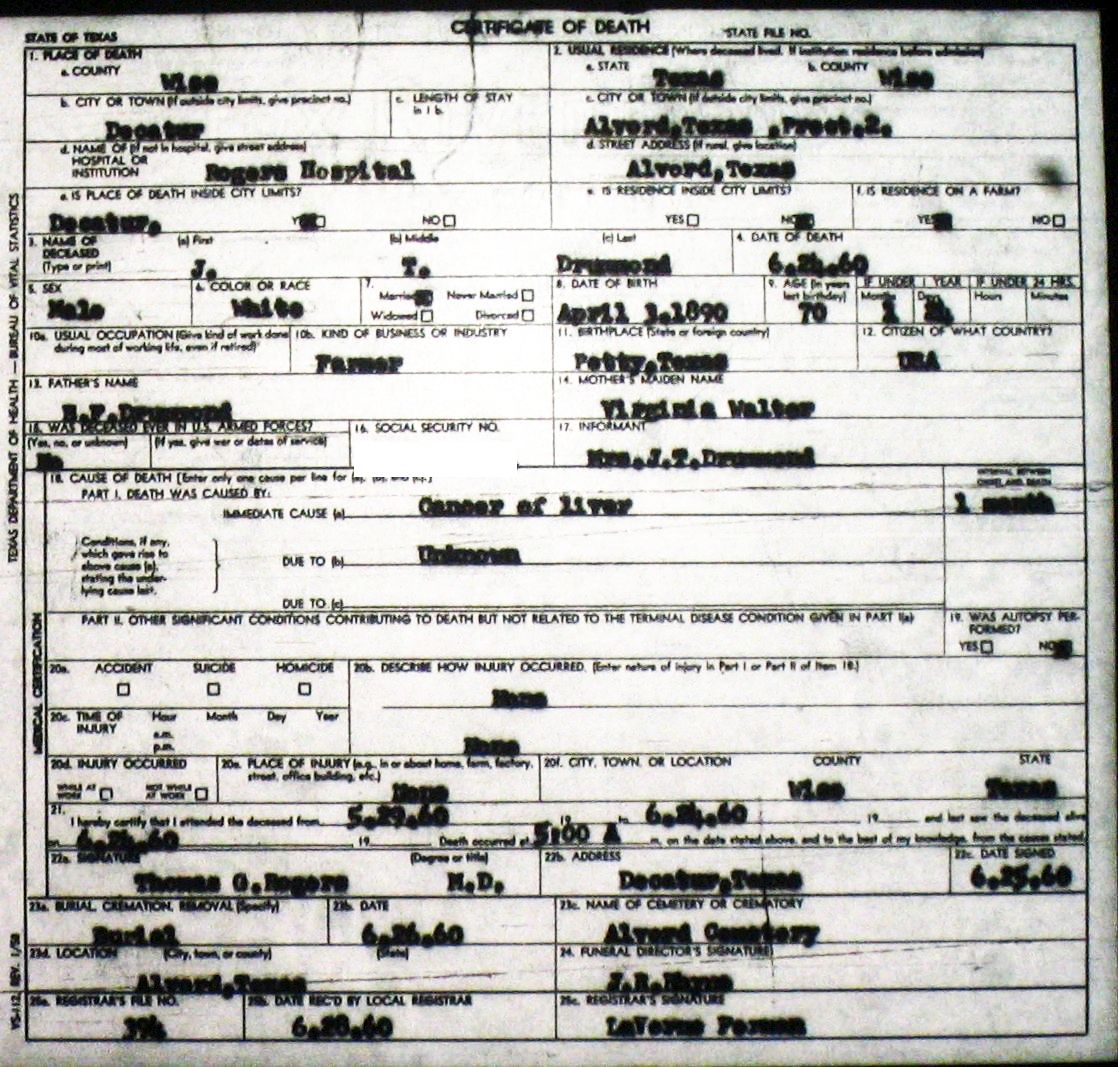 CERTIFICATE OF DEATH
STATE OF TEXAS STATE FILE NO.
1. PLACE OF DEATH 2. USUAL RESIDENCE (Where deceased lived. If institution: residence before admission)
a. COUNTY Wise a. STATE Texas b. COUNTY Wise
b. CITY OR TOWN (If outside city limits, give precinct no.) c. LENGTH OF STAY in 1 b. c. CITY OR TOWN (If outside city limits, give precinct no.)
Decatur Alvord,Texas ,Prect.2.
d. NAME OF (If not in hospital, give street address) HOSPITAL OR INSTITUTION d. STREET ADDRESS (If rural, give location)
Rogers Hospital Alvord,Texas
e. IS PLACE OF DEATH INSIDE CITY LIMITS? e. IS RESIDENCE INSIDE CITY LIMITS? f. IS RESIDENCE ON A FARM?
Decatur, YES NO YES NO YES NO
3. NAME OF DECEASED (Type or print) (a) First (b) Middle (c) Last 4. DATE OF DEATH
J. T. Drummond 6.24.60
5. SEX 6. COLOR OR RACE 7. Married Never Married Widowed Divorced 8. DATE OF BIRTH 9. AGE (In years last birthday) IF UNDER 1 YEAR IF UNDER 24 HRS.
Months Days Hours Minutes
Male White April 3.1890 70 1 24
10a. USUAL OCCUPATION (Give kind of work done during most of working life, even if retired) 10b. KIND OF BUSINESS OR INDUSTRY 11. BIRTHPLACE (State or foreign country) 12. CITIZEN OF WHAT COUNTRY?
Farmer Petty,Texas USA
13. FATHER'S NAME 14. MOTHER'S MAIDEN NAME
Drummond Virginia Walter
15. WAS DECEASED EVER IN U.S. ARMED FORCES? 16. SOCIAL SECURITY NO. 17. INFORMANT
(Yes, no, or unknown) (If yes, give war or dates of service)
No Mrs.J.T.Drummond
18. CAUSE OF DEATH [Enter only one cause per line for (a), (b), and (c).] INTERVAL BETWEEN ONSET AND DEATH
PART I. DEATH WAS CAUSED BY:
IMMEDIATE CAUSE (a) Cancer of liver 1 month
Conditions, if any, which gave rise to above cause (a), stating the underlying cause last.
DUE TO (b) Unknown
DUE TO (c)
PART II. OTHER SIGNIFICANT CONDITIONS CONTRIBUTING TO DEATH BUT NOT RELATED TO THE TERMINAL DISEASE CONDITION GIVEN IN PART I(a) 19. WAS AUTOPSY PERFORMED?
YES NO
20a. ACCIDENT SUICIDE HOMICIDE 20b. DESCRIBE HOW INJURY OCCURRED. (Enter nature of injury in Part I or Part II of Item 18.)
None
20c. TIME OF INJURY Hour Month Day Year
a.m.
p.m. None
20d. INJURY OCCURRED 20e. PLACE OF INJURY (e.g., in or about home, farm, factory, street, office building, etc.) 20f. CITY, TOWN, OR LOCATION COUNTY STATE
WHILE AT WORK NOT WHILE AT WORK None Wise Texas
21. I hereby certify that I attended the deceased from 5.29.60 19 to 6.24.60 19 and last saw the deceased alive
on 6.24.60 19 Death occurred at 5:00 A m, on the date stated above, and to the best of my knowledge, from the causes stated.
22a. SIGNATURE (Degree or title) 22b. ADDRESS 22c. DATE SIGNED
Thomas G.Rogers M.D. Decatur,Texas 6.25.60
23a. BURIAL, CREMATION, REMOVAL (Specify) 23b. DATE 23c. NAME OF CEMETERY OR CREMATORY
Burial 6.26.60 Alvord Cemetery
23d. LOCATION (City, town, or county) (State) 24. FUNERAL DIRECTOR'S SIGNATURE
Alvord,Texas
25a. REGISTRAR'S FILE NO. 25b. DATE REC'D BY LOCAL REGISTRAR 25c. REGISTRAR'S SIGNATURE
394 6.28.60 LaVerne
TEXAS DEPARTMENT OF HEALTH — BUREAU OF VITAL STATISTICS
MEDICAL CERTIFICATION
VS-112, REV. 1/58